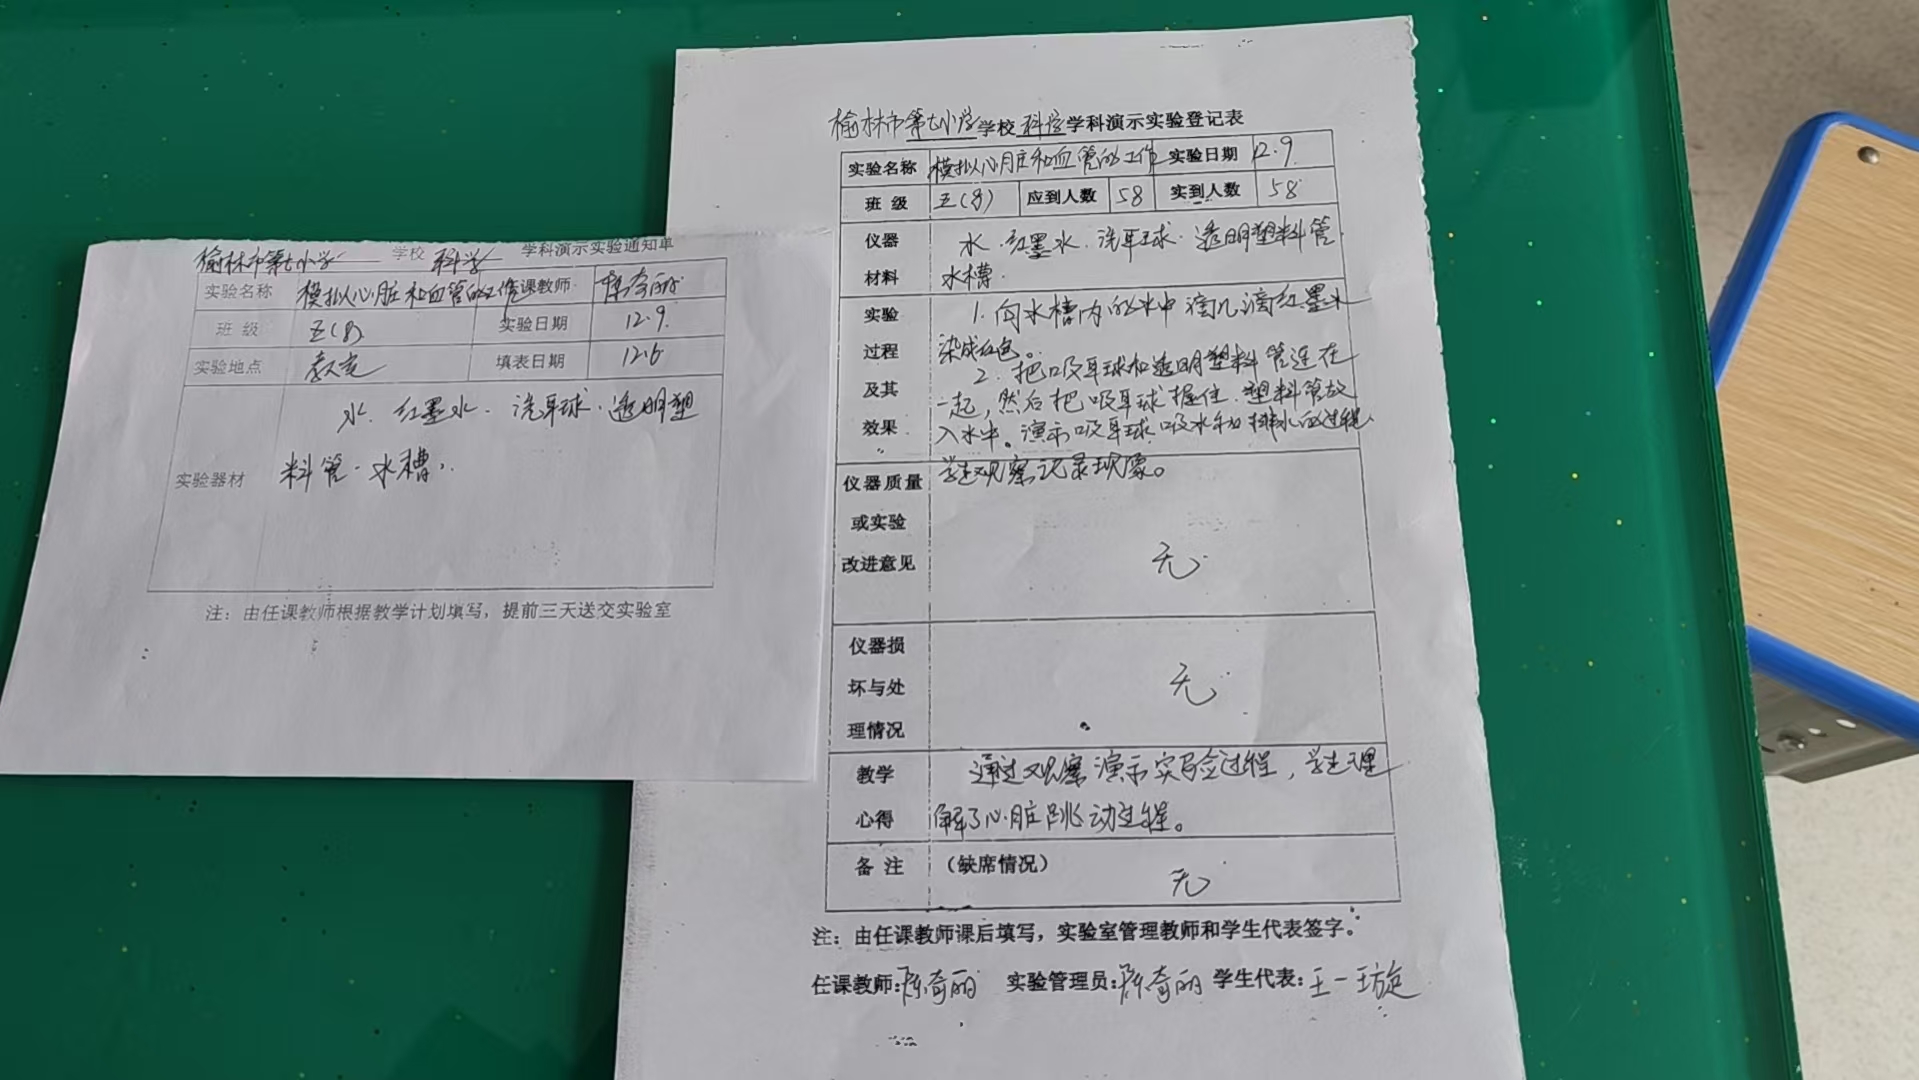 榆林市第七小学 学校 科学 学科演示实验通知单
实验名称 模拟心脏和血管的工作 任课教师 陈奇丽
班 级 五(8) 实验日期 12.9.
实验地点 教室 填表日期 12.6
实验器材 水. 红墨水. 洗耳球. 透明塑
料管. 水槽.
注：由任课教师根据教学计划填写，提前三天送交实验室
榆林市第七小学学校科学学科演示实验登记表
实验名称 模拟心脏和血管的工作 实验日期 12.9.
班 级 五(8) 应到人数 58 实到人数 58
仪器 水. 红墨水. 洗耳球. 透明塑料管.
材料 水槽.
实验 1. 向水槽内的水中滴几滴红墨水
过程 染成红色。
及其 2. 把吸耳球和透明塑料管连在
一起, 然后把吸耳球握住. 塑料管放
效果 入水中。演示吸耳球吸水和排水的过程.
学生观察记录现象。
仪器质量
或实验
改进意见 无
仪器损
坏与处 无
理情况
教学 通过观察演示实验过程, 学生理
心得 解了心脏跳动过程。
备 注 （缺席情况） 无
注：由任课教师课后填写，实验室管理教师和学生代表签字。
任课教师:陈奇丽 实验管理员:陈奇丽 学生代表:王一璇